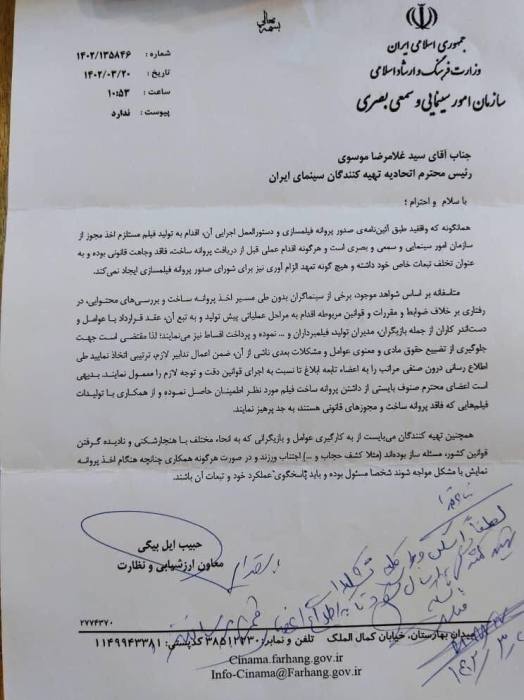 بسمه تعالی
جمهوری اسلامی ایران
وزارت فرهنگ و ارشاد اسلامی
سازمان امور سینمایی و سمعی بصری
شماره : ۱۴۰۲/۱۳۵۸۴۶
تاریخ : ۱۴۰۲/۰۳/۲۰
ساعت : ۱۰:۵۳
پیوست : ندارد
جناب آقای سید غلامرضا موسوی
رئیس محترم اتحادیه تهیه کنندگان سینمای ایران
با سلام و احترام ؛
همانگونه که واقفید طبق آئین‌نامه‌ی صدور پروانه فیلمسازی و دستورالعمل اجرایی آن، اقدام به تولید فیلم مستلزم اخذ مجوز از
سازمان امور سینمایی و سمعی و بصری است و هرگونه اقدام عملی قبل از دریافت پروانه ساخت، فاقد وجاهت قانونی بوده و به
عنوان تخلف تبعات خاص خود داشته و هیچ گونه تعهد الزام آوری نیز برای شورای صدور پروانه فیلمسازی ایجاد نمی‌کند.
متاسفانه بر اساس شواهد موجود، برخی از سینماگران بدون طی مسیر اخذ پروانه ساخت و بررسی‌های محتوایی، در
رفتاری بر خلاف ضوابط و مقررات و قوانین مربوطه اقدام به مراحل عملیاتی پیش تولید و به تبع آن، عقد قرارداد با عوامل و
دست‌اندر کاران از جمله بازیگران، مدیران تولید، فیلمبرداران و ... نموده و پرداخت اقساط نیز می‌نمایند؛ لذا مقتضی است جهت
جلوگیری از تضییع حقوق مادی و معنوی عوامل و مشکلات بعدی ناشی از آن، ضمن اعمال تدابیر لازم، ترتیبی اتخاذ نمایید طی
اطلاع رسانی درون صنفی مراتب را به اعضاء تابعه ابلاغ تا نسبت به اجرای قوانین دقت و توجه لازم را معمول نمایند. بدیهی
است اعضای محترم صنوف بایستی از داشتن پروانه ساخت فیلم مورد نظر اطمینان حاصل نموده و از همکاری با تولیدات
فیلم‌هایی که فاقد پروانه ساخت و مجوزهای قانونی هستند، به جد پرهیز نمایند.
همچنین تهیه کنندگان می‌بایست از به کارگیری عوامل و بازیگرانی که به انحاء، مختلف با هنجارشکنی و نادیده گرفتن
قوانین کشور، مسئله ساز بوده‌اند (مثلا کشف حجاب و ...) اجتناب ورزند و در صورت هرگونه همکاری چنانچه هنگام اخذ پروانه
نمایش با مشکل مواجه شوند شخصا مسئول بوده و باید پاسخگوی عملکرد خود و تبعات آن باشند.
حبیب ایل بیگی
معاون ارزشیابی و نظارت
۲۷۷۴۳۷۰
میدان بهارستان، خیابان کمال الملک تلفن و نمابر: ۳۸۵۱۲۲۳۰ کدپستی: ۱۱۴۹۹۴۳۳۸۱
Cinama.farhang.gov.ir
Info-Cinama@Farhang.gov.ir